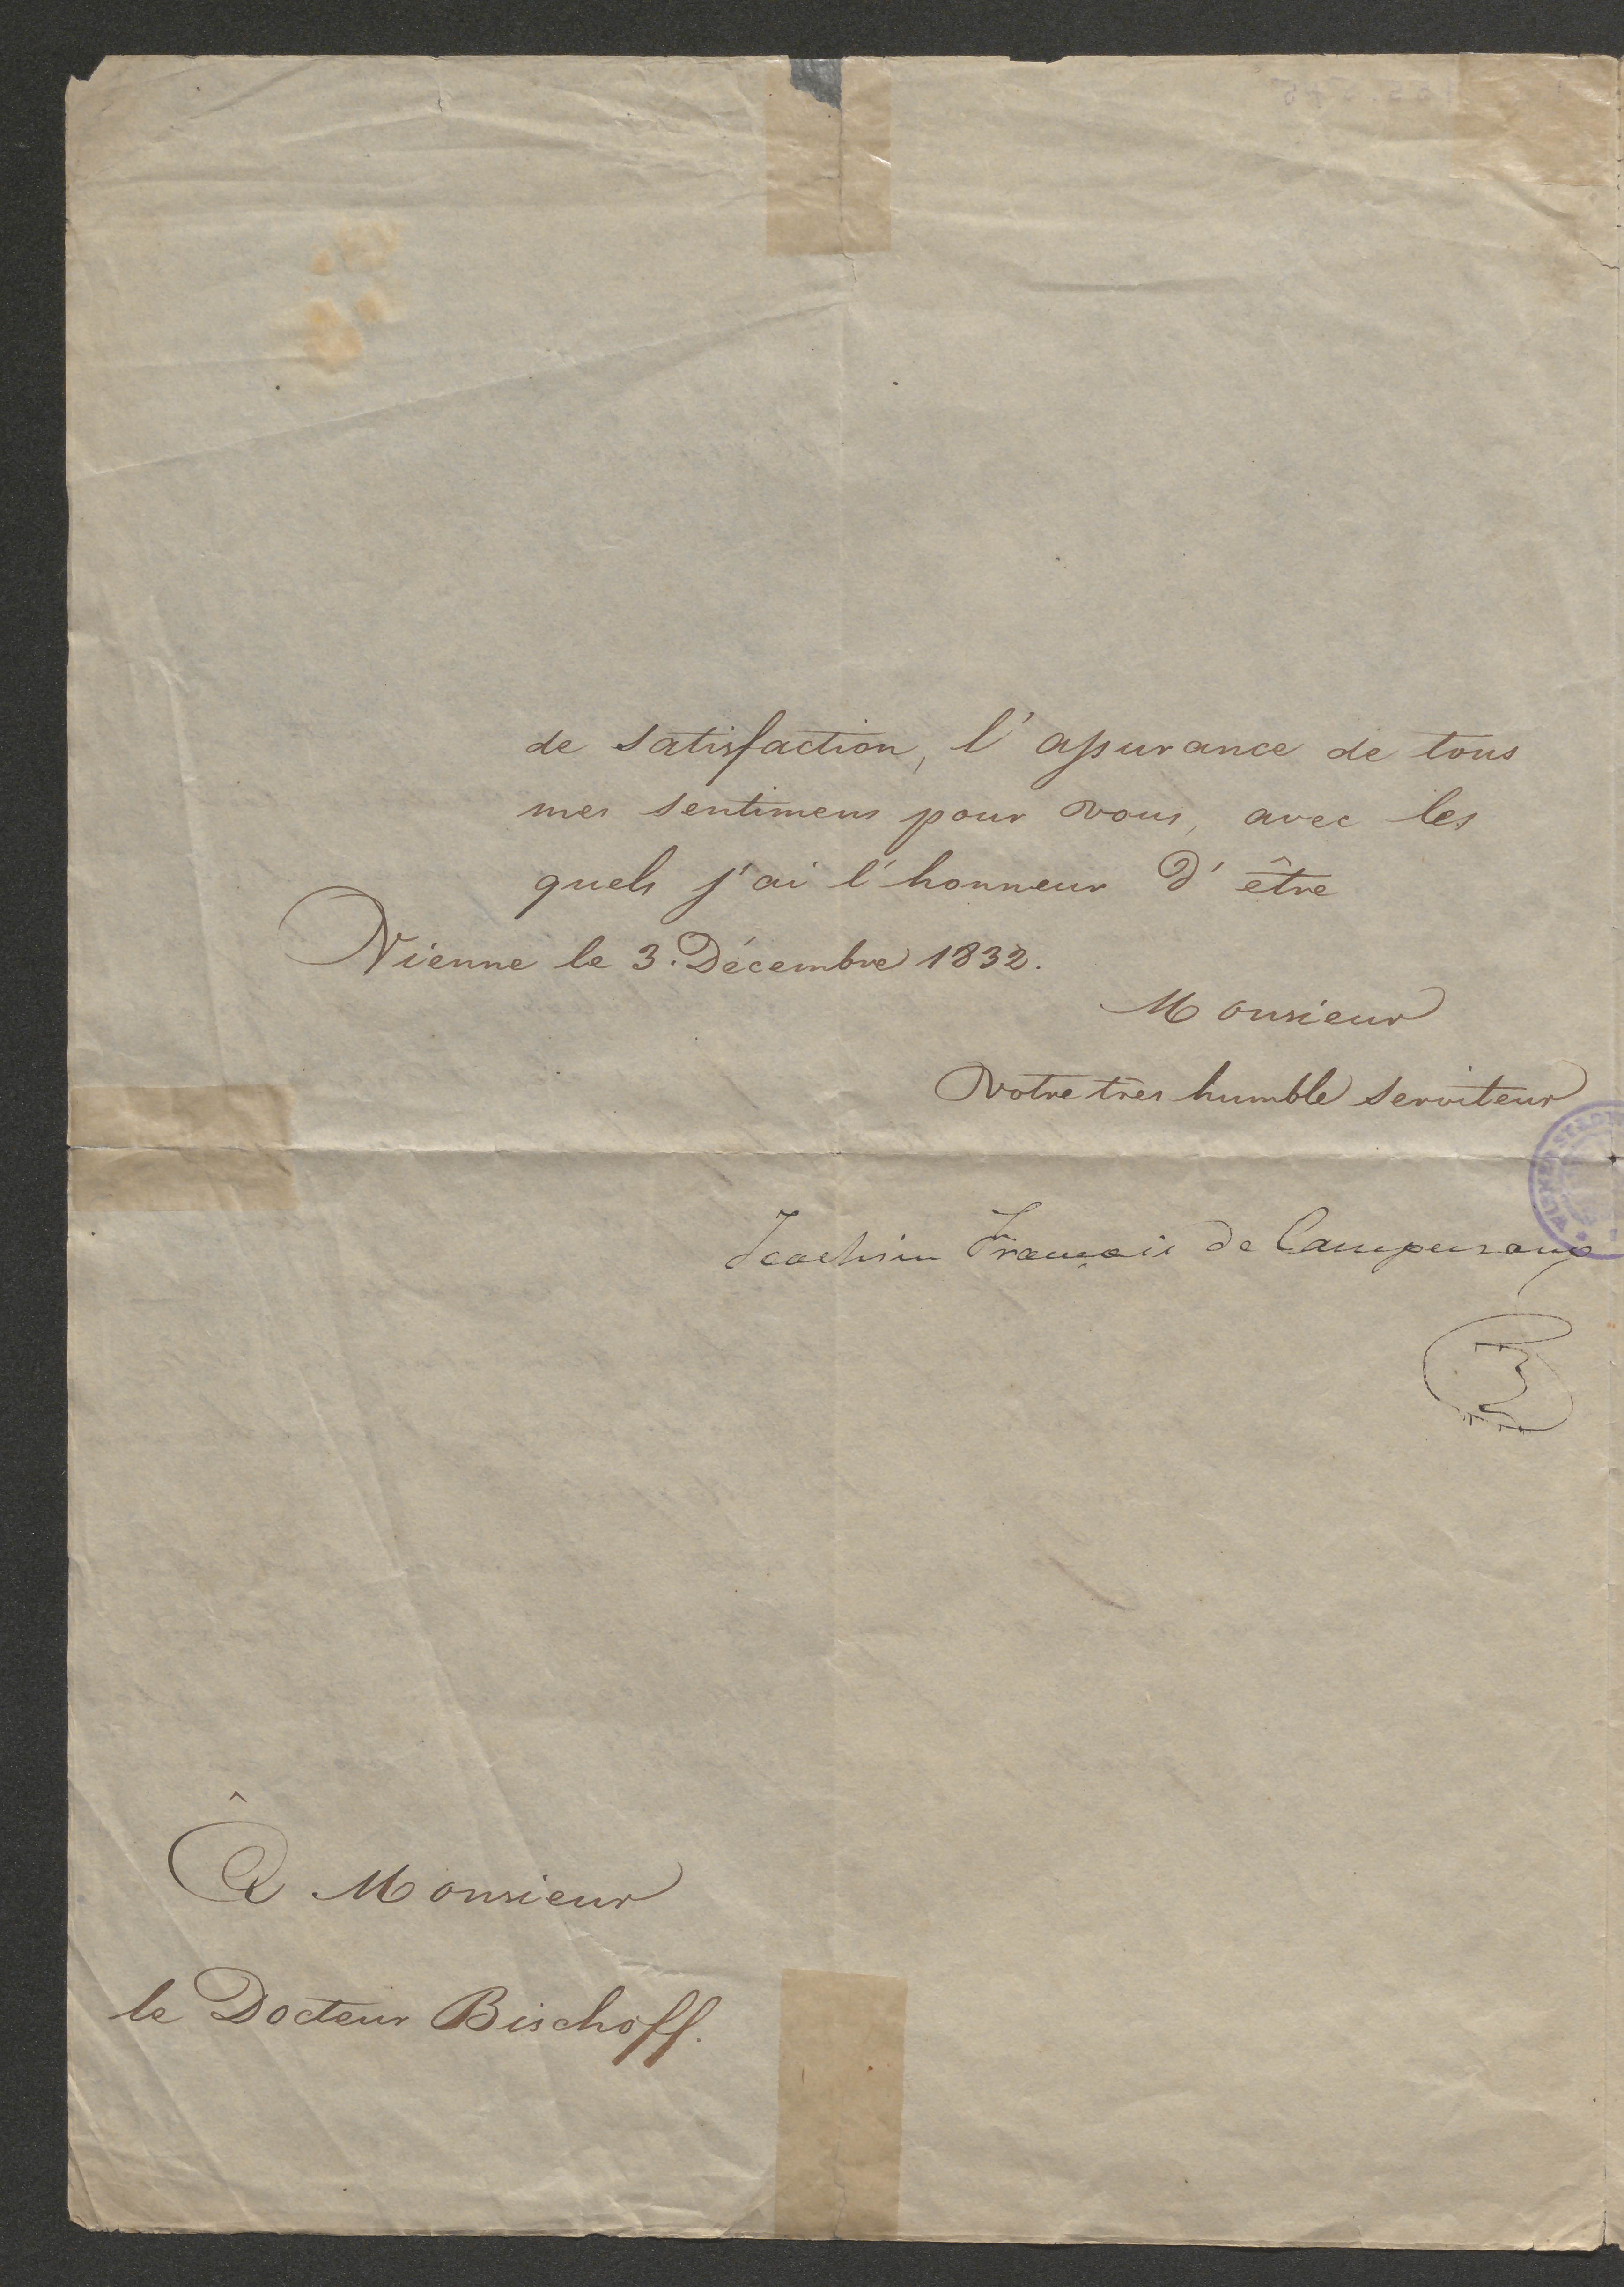 de satisfaction, l'assurance de tous
mes sentimens pour vous, avec les
quels j'ai l'honneur d'être
Vienne le 3. Décembre 1832.
Monsieur
votre très humble serviteur
Joachim François de
À Monsieur
le Docteur Bischoff.